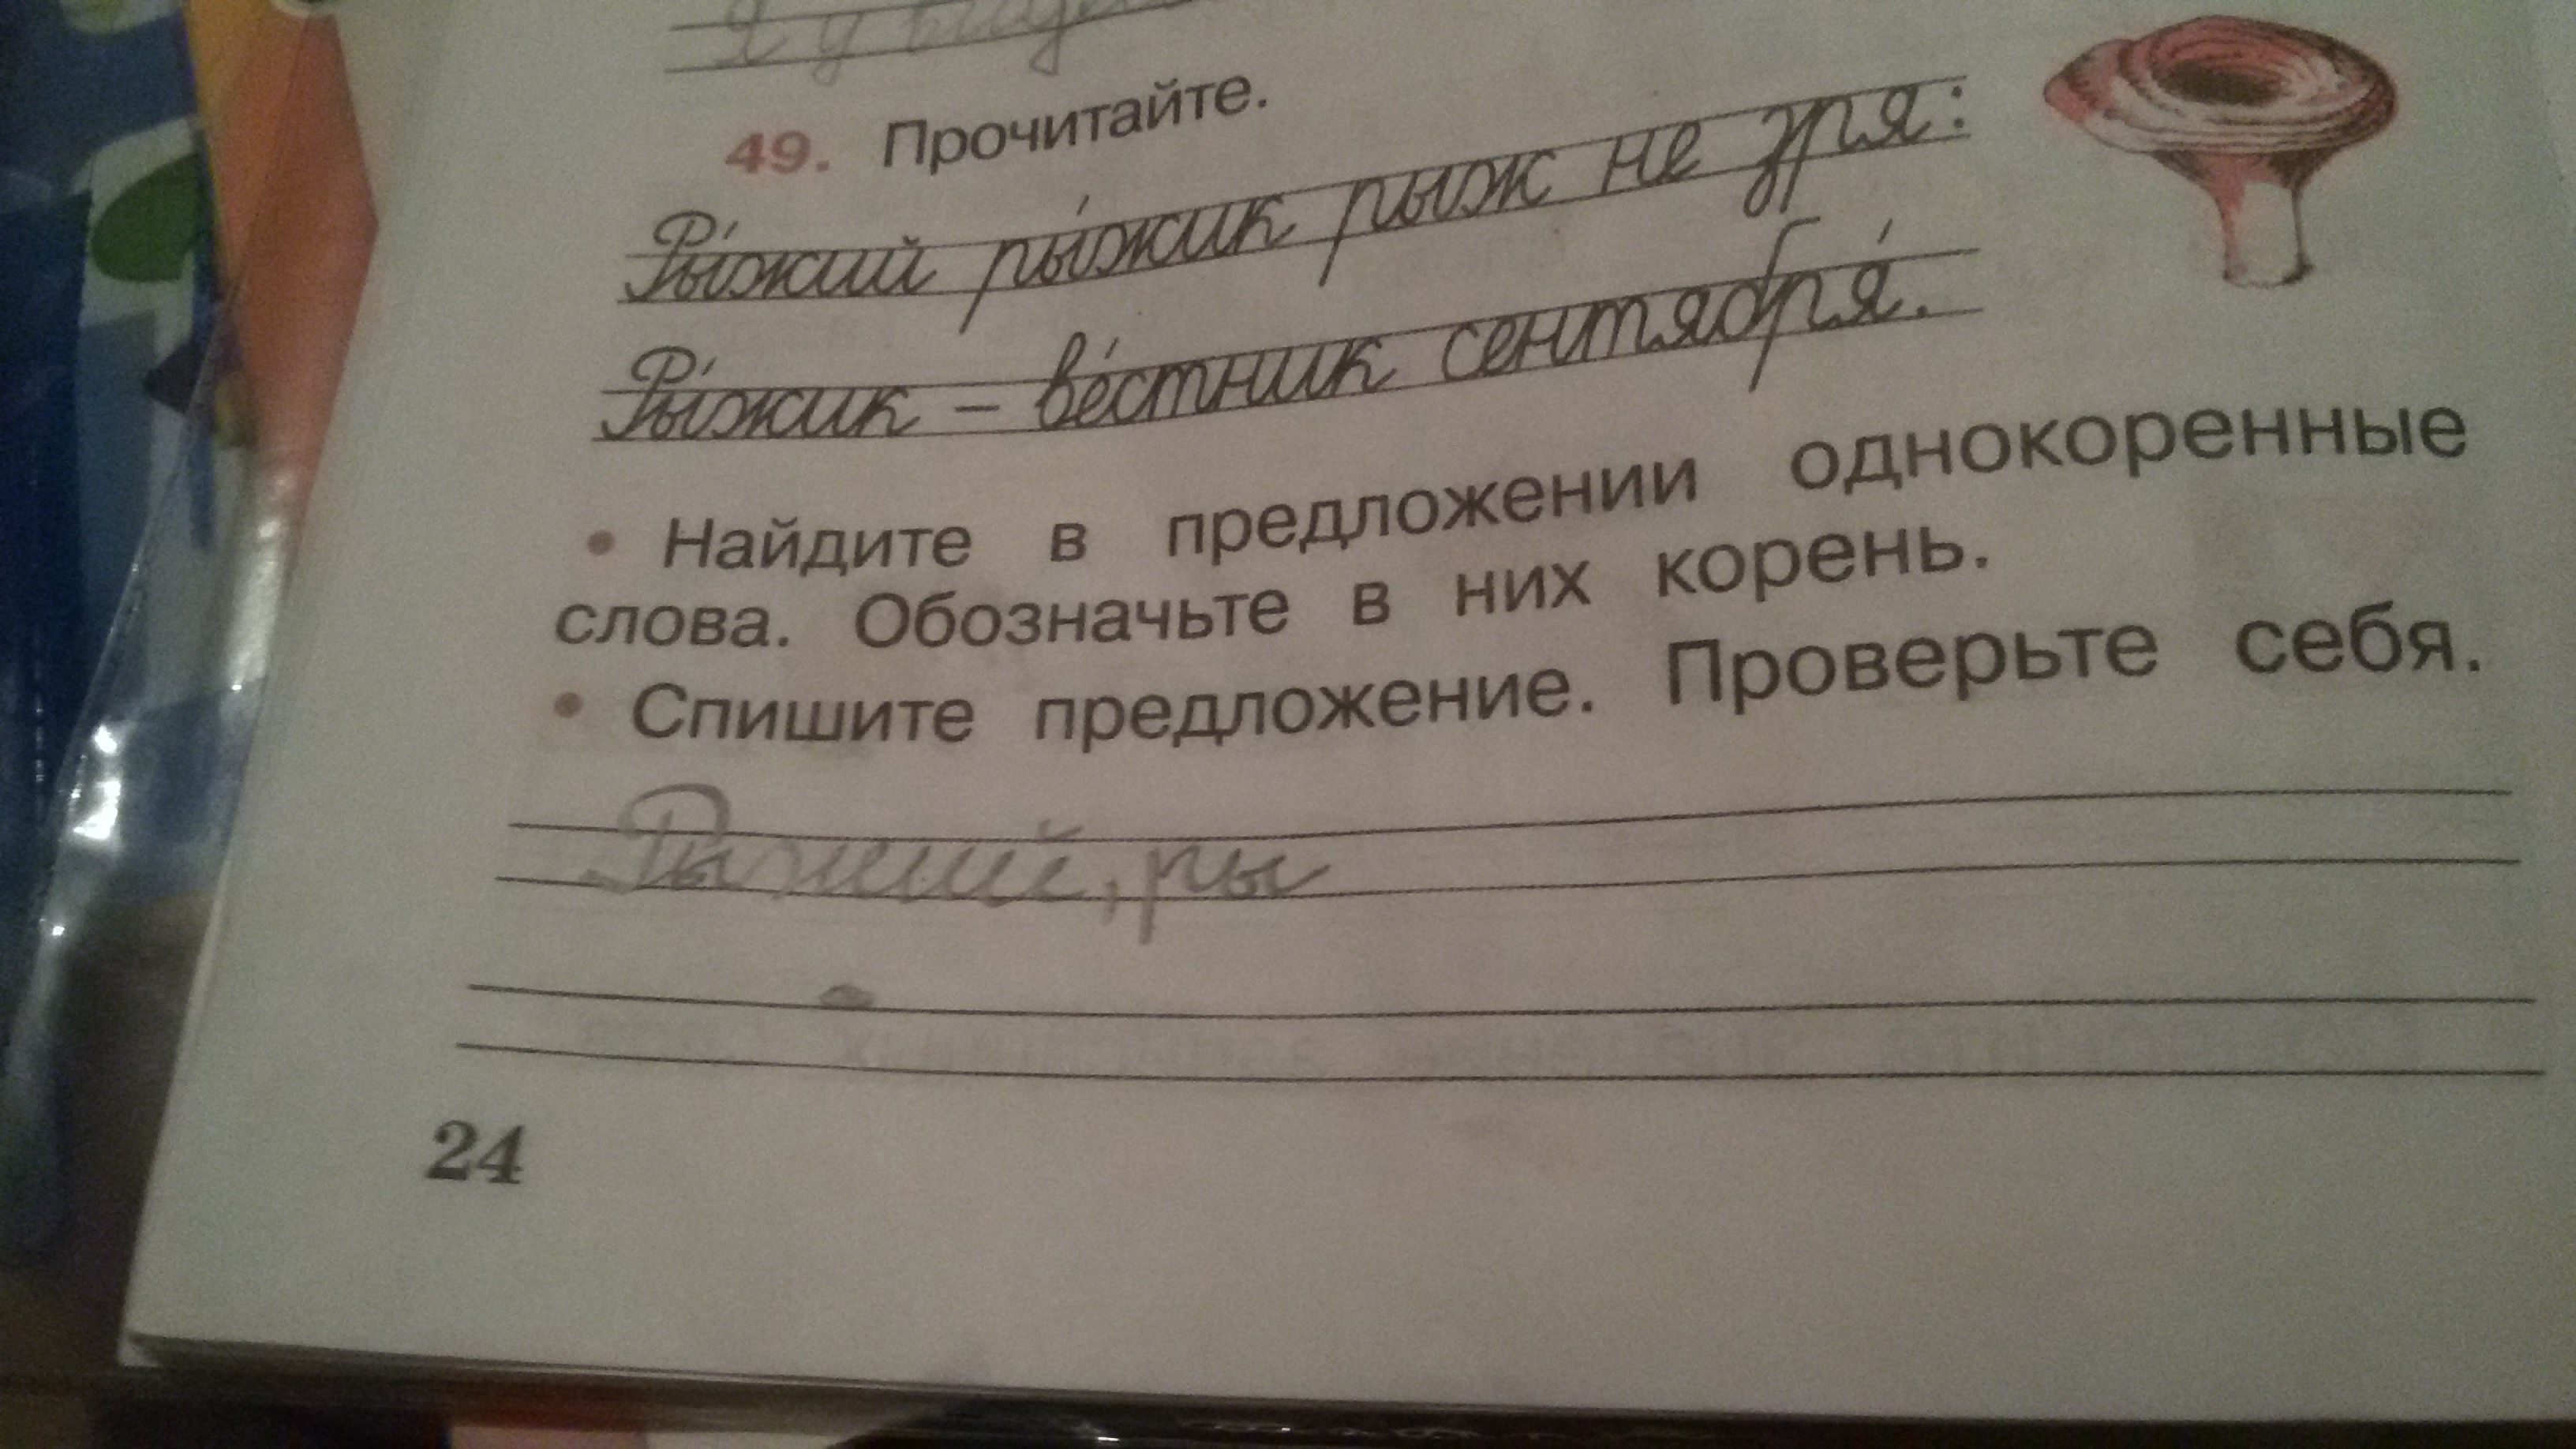 Я у
49. Прочитайте.
Ры́жий ры́жик рыж не зря:
Ры́жик – ве́стник сентября́.
• Найдите в предложении однокоренные
слова. Обозначьте в них корень.
• Спишите предложение. Проверьте себя.
Рыжий, ры
24